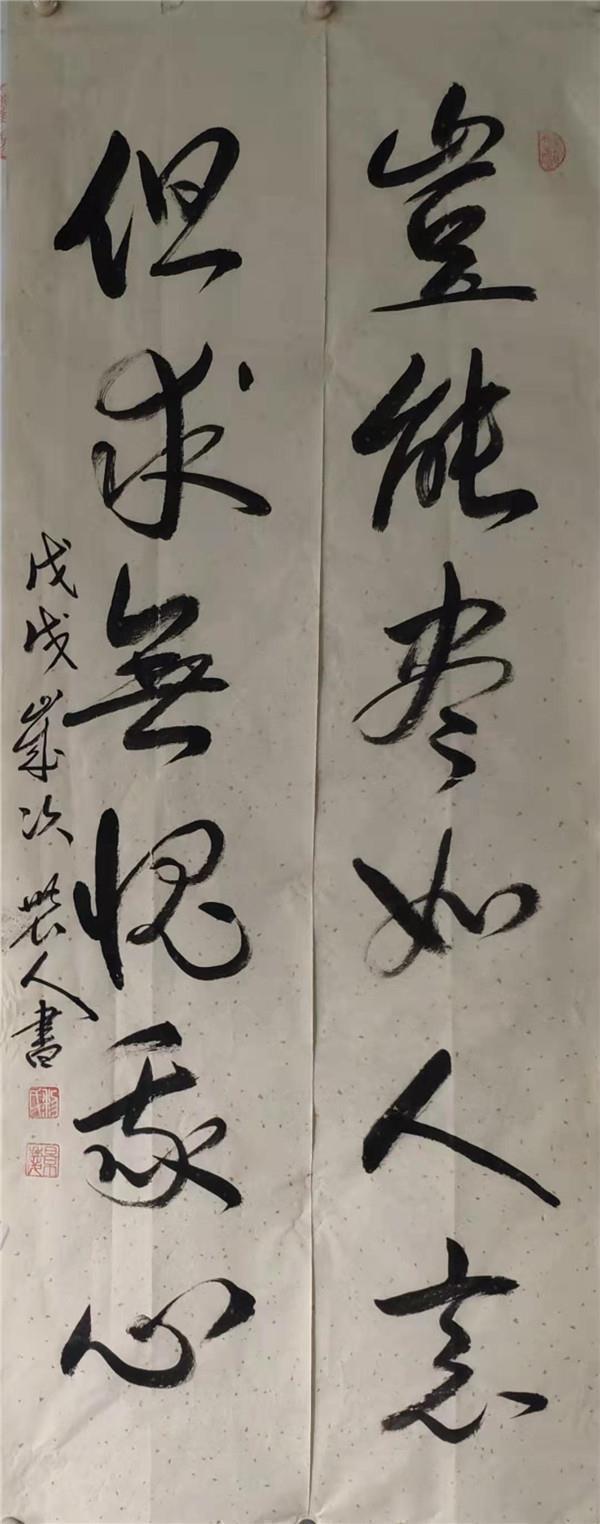 豈能尽如人意
但求無愧我心
戊戌歲次 人書